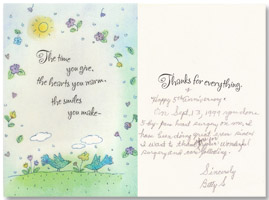 The time
you give,
the hearts you warm,
the smiles
you make–
Thanks for everything.
Happy 5th Anniversary.
On Sept 13, 1999 you done
I have been doing great ever since
I want to thank you wonderful
surgery and
Sincerely
Betty